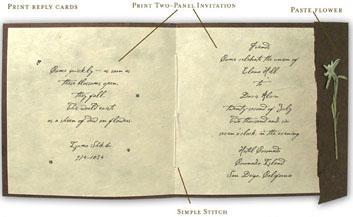 PRINT REPLY CARDS
PRINT TWO-PANEL INVITATION
PASTE FLOWER
Come quickly – as soon as
these blossoms open,
they fall.
This world exists
as a sheen of dew on flowers.
Izumi Shikibu
974-1034
Friends
Come celebrate the union of
Elaine Hall
to
Dave Allen
twenty-second of July
Two thousand and six
seven o'clock in the evening
Hotel Coronado
Coronado Island
San Diego California
SIMPLE STITCH